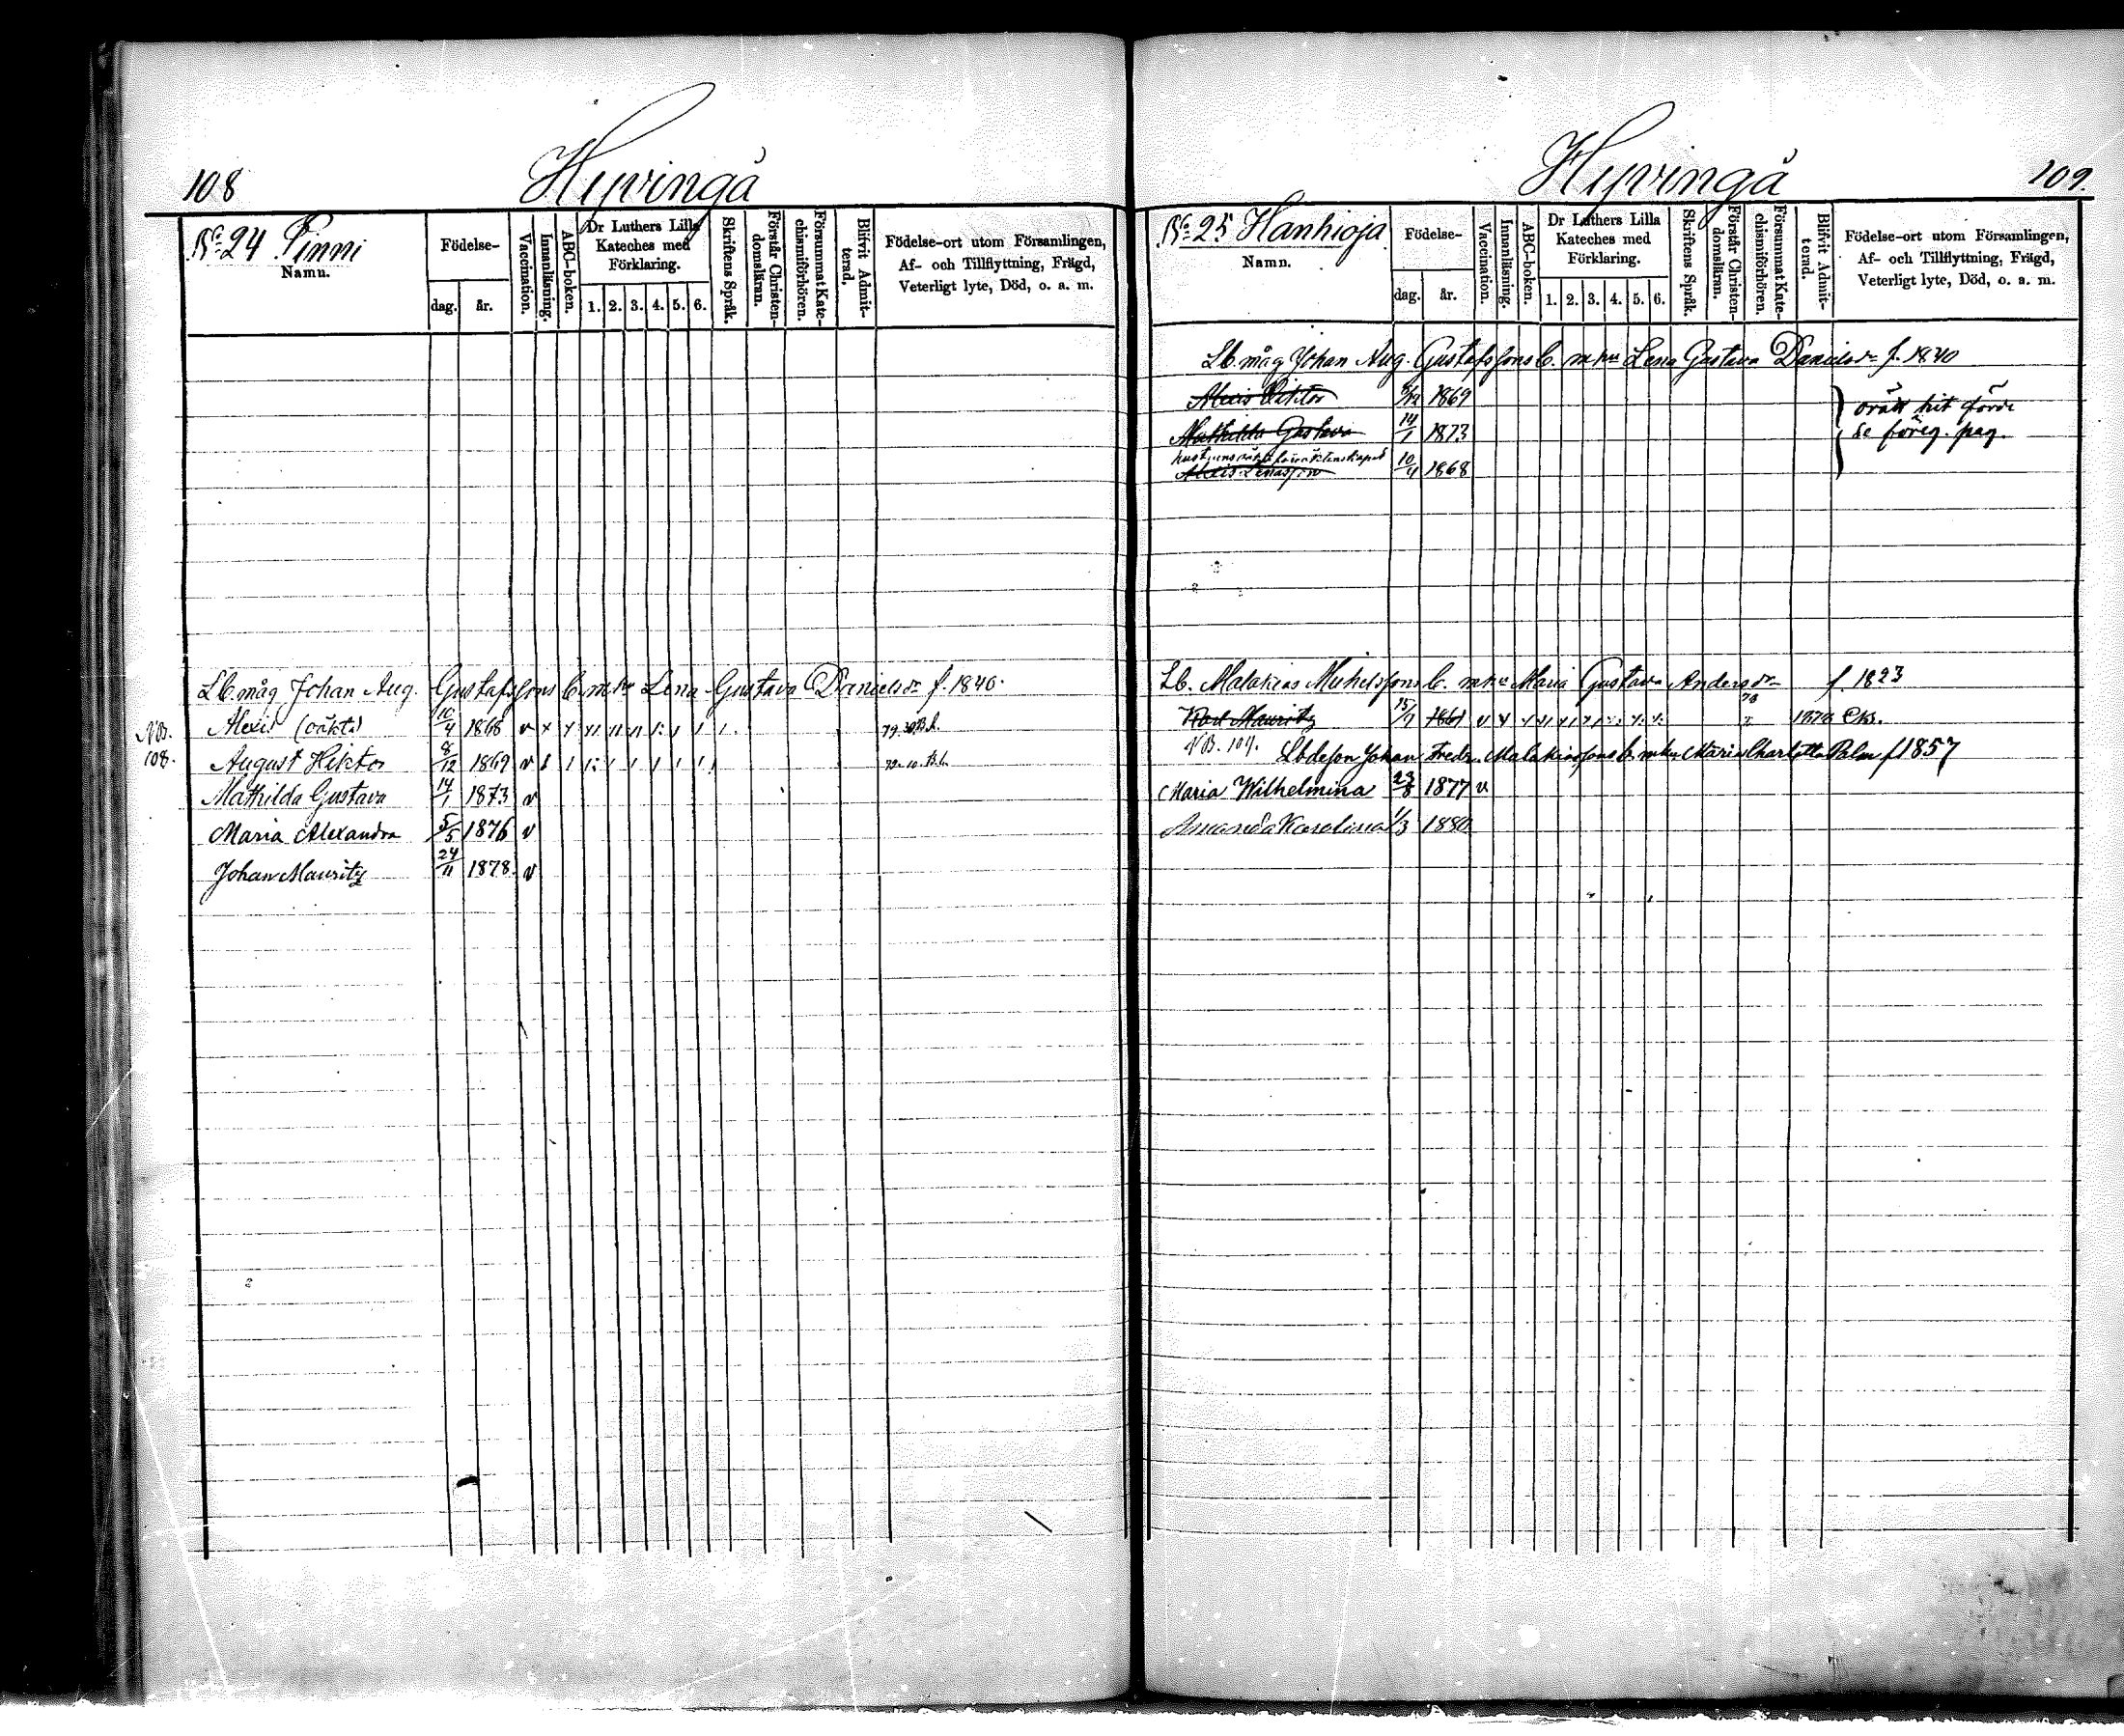 108
Hyvingå
No 24 Pinni
Namn.
Födelse-
dag.
år.
Vaccination.
Innanläsning.
ABC-boken.
Dr Luthers Lilla
Kateches med
Förklaring.
1. 2. 3. 4. 5. 6.
Skriftens Språk.
Förstår Christen-
domsläran.
Försummat Kate-
chismiförhören.
Blifvit Admit-
terad,
Födelse-ort utom Församlingen,
Af- och Tillflyttning, Frägd,
Veterligt lyte, Död, o. a. m.
Lb. måg Johan Aug. Gustafssons b. m. hu Lena Gustava Danielsdr f. 1840.
NB. Alexis (oäkta) 10/4 1868 v
108. August Viktor 8/12 1869 v
Mathilda Gustava 14/1 1873 v
Maria Alexandra 5/5 1876 v
Johan Mauritz 24/11 1878. v
Hyvingå
109.
No 25 Hanhioja
Namn.
Födelse-
dag.
år.
Vaccination.
Innanläsning.
ABC-boken.
Dr Luthers Lilla
Kateches med
Förklaring.
1. 2. 3. 4. 5. 6.
Skriftens Språk.
Förstår Christen-
domsläran.
Försummat Kate-
chismiförhören.
Blifvit Admit-
terad.
Födelse-ort utom Församlingen,
Af- och Tillflyttning, Frägd,
Veterligt lyte, Död, o. a. m.
Lb. måg Johan Aug. Gustafssons b. m. hu Lena Gustava Danielsdr f. 1840
Alexis Viktor 8/12 1869 orätt hit förde
Mathilda Gustava 14/1 1873 se föreg. pag.
Alexis Lenasson 10/4 1868
Lb. Malakias Michelssons b. m hu Maria Gustava Andersdr f. 1823
Karl Mauritz 15/1 1861 78
NB. 107. Lbdesson Johan Fredr. Malakiassons b. m hu Maria Charlotta Palm f 1857
Maria Wilhelmina 23/8 1877 v
Amanda Karolina 1/3 1880